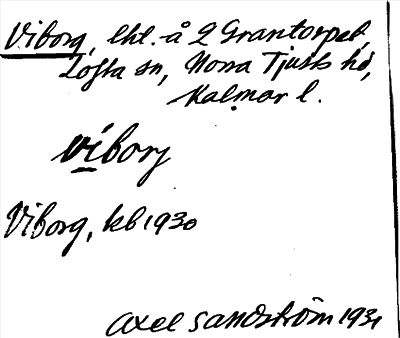 Viborg, lht. å 2 Grantorpet
Lofta sn, Norra Tjusts hd,
Kalmar l.
víborj
Viborg, kb 1930
Axel Sandström 1931